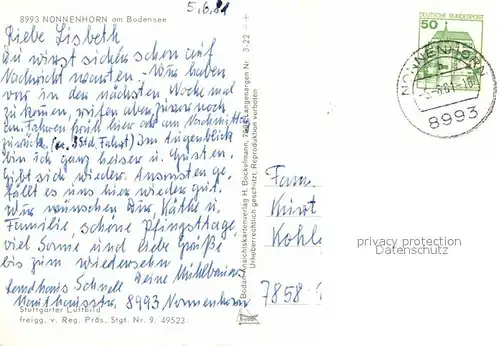 5.6.81
8993 NONNENHORN am Bodensee
Liebe Lisbeth
Du wirst sicher schon auf
Nachricht warten. Wir haben
vor in den nächsten Woche mal
zu kommen, rufen aber zuvor noch
an fahren früh hier ab am Nachmittag
zurück (ca. Std. Fahrt) Im Augenblick
bin ich ganz heiser u. Husten,
gibt sich wieder. Ansonsten ge-
fällt es uns hier wieder gut.
Wir wünschen Dir, Käthe u.
Familie, schöne Pfingsttage,
viel Sonne und liebe Grüße
bis zum wiedersehen
Deine
Landhaus Schnell
8993 Nonnenhorn
Stuttgarter Luftbild
freigg. v. Reg. Präs. Stgt. Nr. 9. 49523
Bodan-Ansichtskartenverlag H. Bockelmann, Langenargen Nr. 3-22
Urheberrechtlich geschützt. Reproduktion verboten
DEUTSCHE BUNDESPOST
50
NONNENHORN
8993
Fam.
Kurt
Kohl
privacy protection
Datenschutz
7858